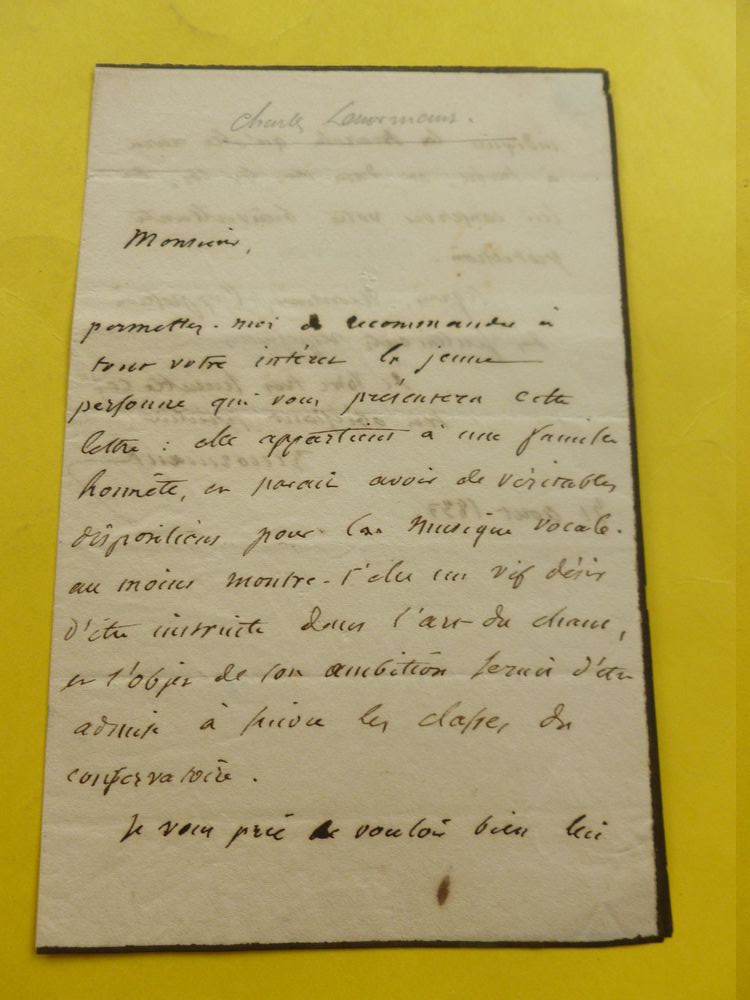 Charles Lenormant.
Monsieur,
permettez-moi de recommander à
tout votre intérêt la jeune
personne qui vous présentera cette
lettre : elle appartient à une famille
honnête, et paraît avoir de véritables
dispositions pour la musique vocale.
au moins montre-t'elle un vif désir
d'être instruite dans l'art du chant,
et l'objet de son ambition serait d'être
admise à suivre les classes du
conservatoire.
Je vous prie de vouloir bien lui